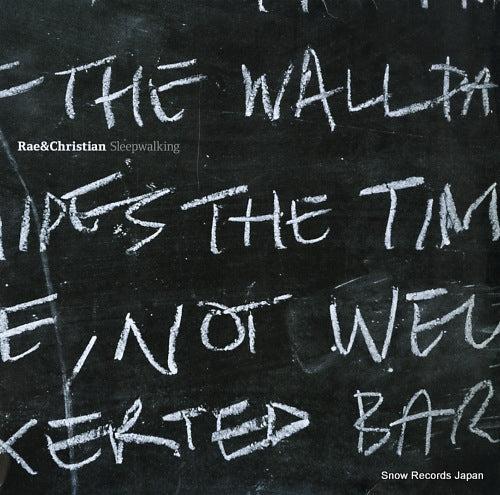 THE WALLPA
Rae&Christian Sleepwalking
IPES THE TIM
E, NOT WEL
KERTED BAR
Snow Records Japan